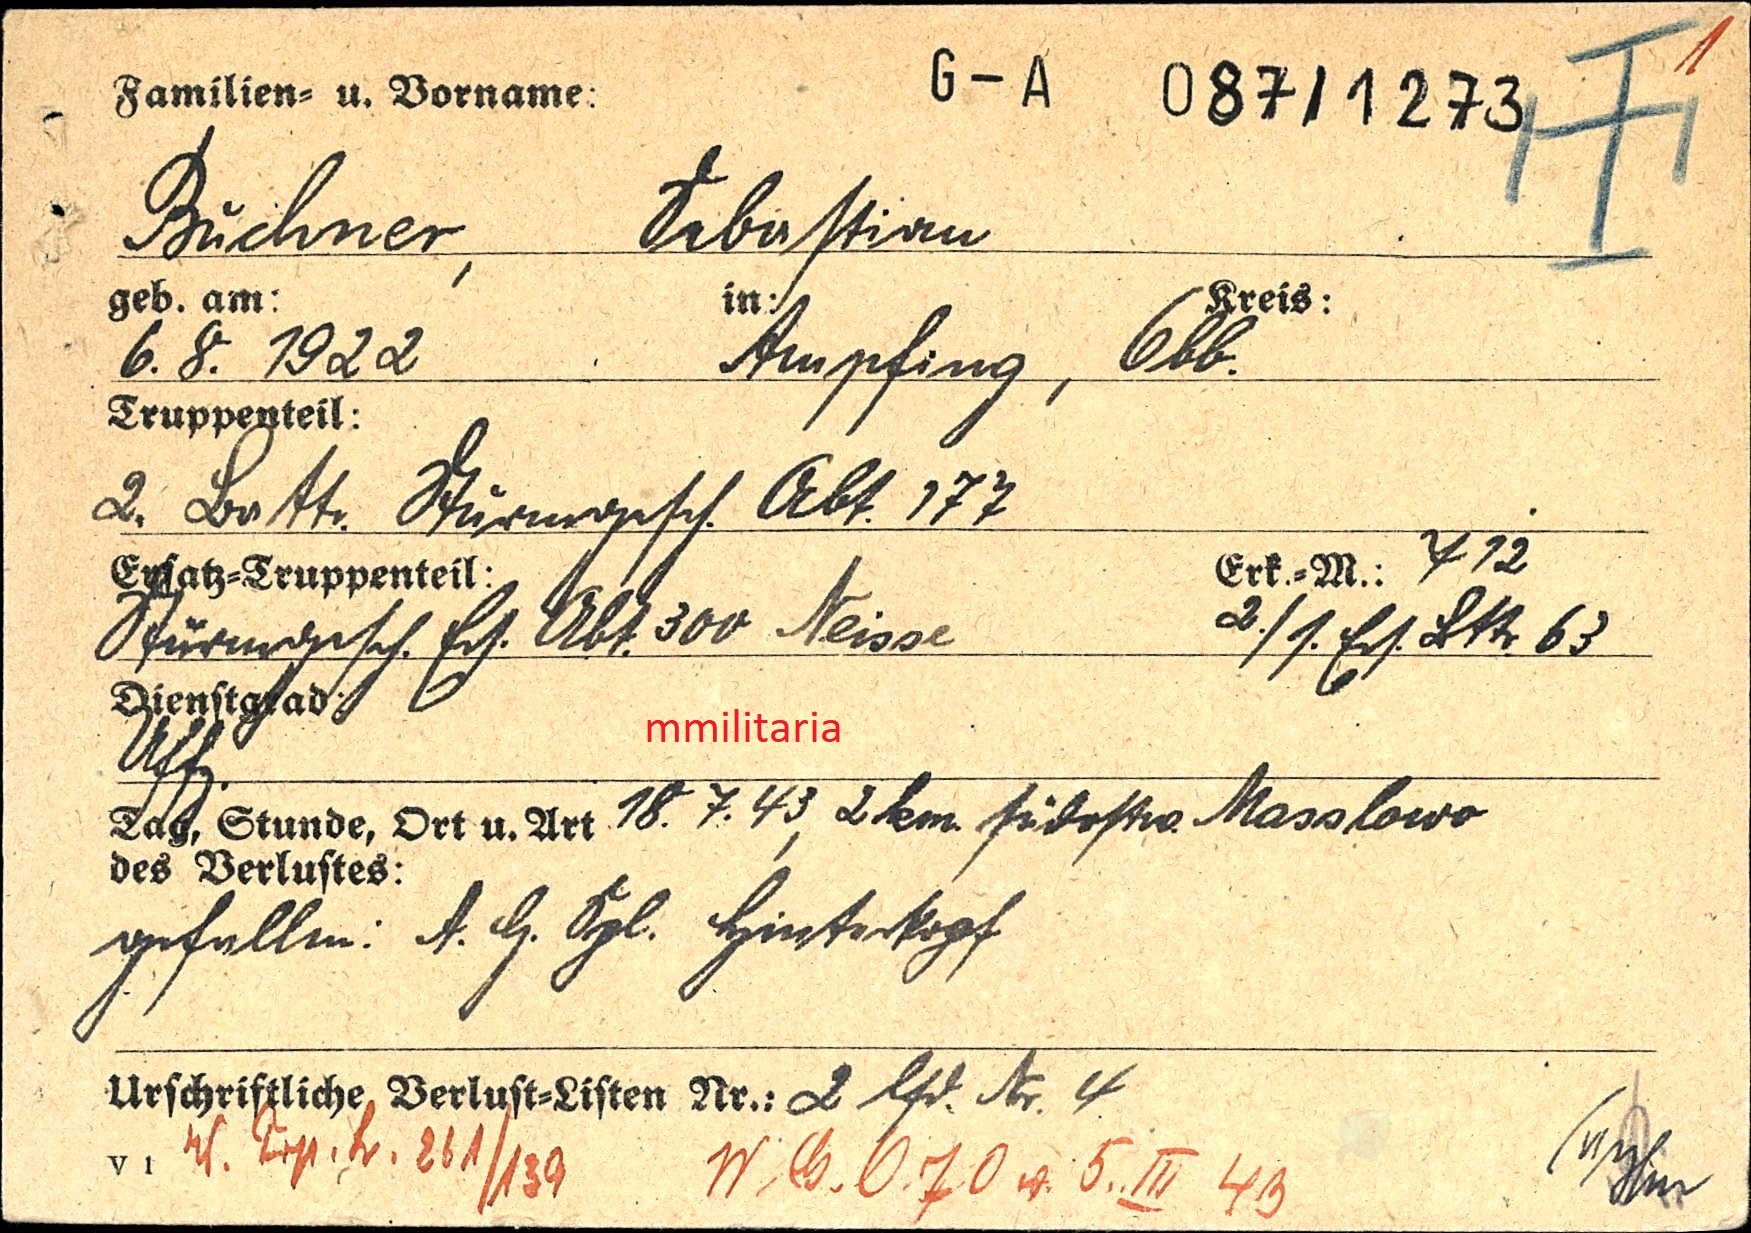 G-A 087/1273 1
Familien- u. Vorname:
Büchner, Sebastian
geb. am: in: Kreis:
6.8.1922 Ampfing, Obb.
Truppenteil:
2. Battr. Sturmgesch. Abt. 177
Ersatz-Truppenteil: Erk.-M.: 412
Sturmgesch. Ers. Abt. 300 Neisse 2./s. Ers. Bttr. 63
Dienstgrad:
Uffz.
mmilitaria
Tag, Stunde, Ort u. Art 18.7.43, 2 km südostw. Masslowo
des Verlustes:
gefallen: A. G. Spl. Hinterkopf
Urschriftliche Verlust-Listen Nr.: 2 lfd. Nr. 4
V 1 261/139 5. III 43